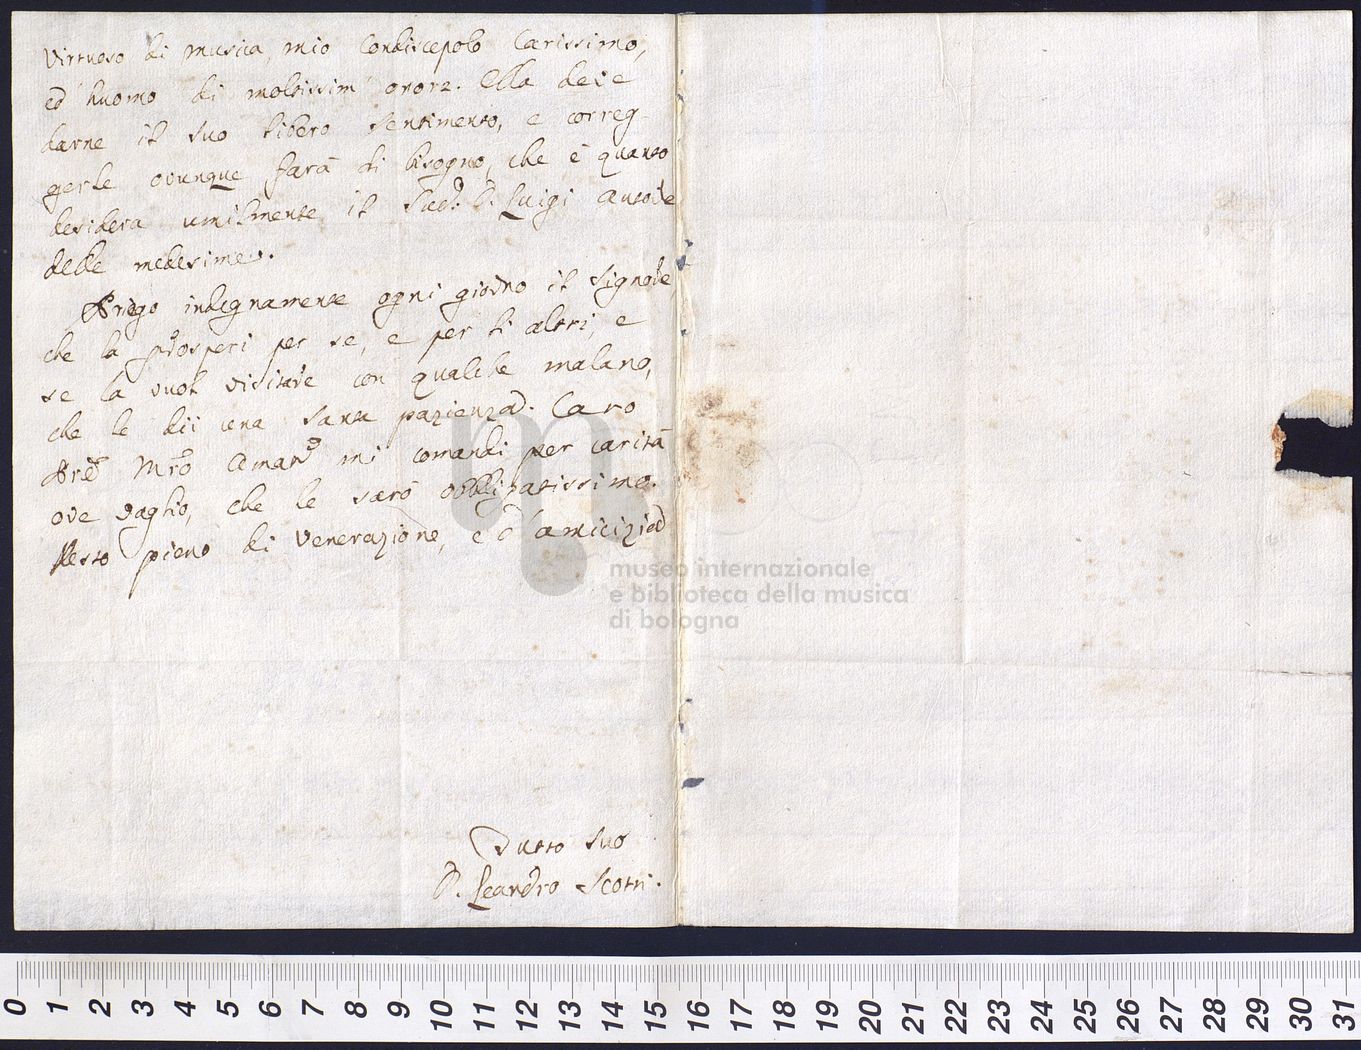 Virtuoso di musica, mio Condiscepolo Carissimo,
ed huomo di moltissim' onore. Ella deve
darne il suo libero sentimento, e correg-
gerle ovunque farà di bisogno, che è quanto
desidera umilmente il Sud.º P. Luigi autore
delle medesime.
Priego indegnamente ogni giorno il Signore,
che la prosperi per se, e per li altri, e
se la vuol visitare con qualche malano,
che le dii una santa pazienza. Caro
Pre Mro Amano mi comandi per carità
ove vaglio, che le sarò obbligatissimo.
Resto pieno di venerazione, e d'amicizia
Tutto suo
P. Leandro Scotti.
museo internazionale
e biblioteca della musica
di bologna
0 1 2 3 4 5 6 7 8 9 10 11 12 13 14 15 16 17 18 19 20 21 22 23 24 25 26 27 28 29 30 31